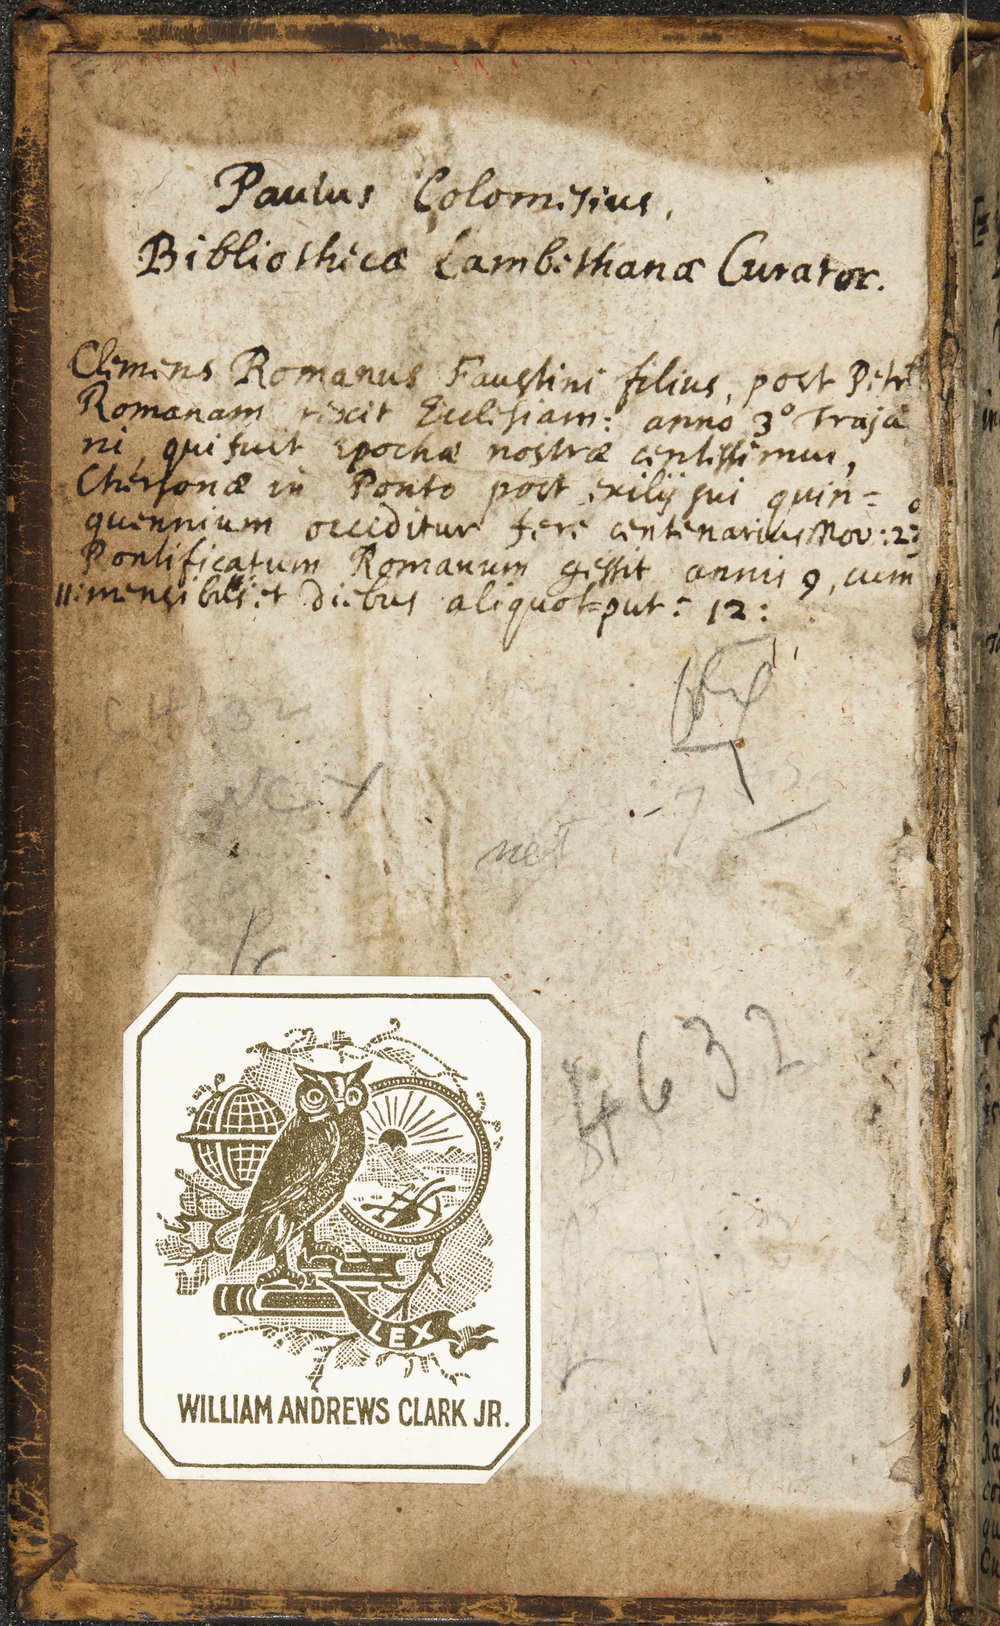 Paulus Colomesius,
Bibliothecæ Lambethanæ Curator.
Clemens Romanus Faustini filius, post Petrū
Romanam rexit Ecclesiam: anno 3º Traja
ni, qui fuit Epochæ nostræ centissimus,
Chersonæ in Ponto post exilij sui quin=
quennium occiditur fere centenarius Nov: 23
Pontificatum Romanum gessit annis 9, cum
11: mensibus: et diebus aliquot put: 12:
C4632
net
4632
LEX
WILLIAM ANDREWS CLARK JR.